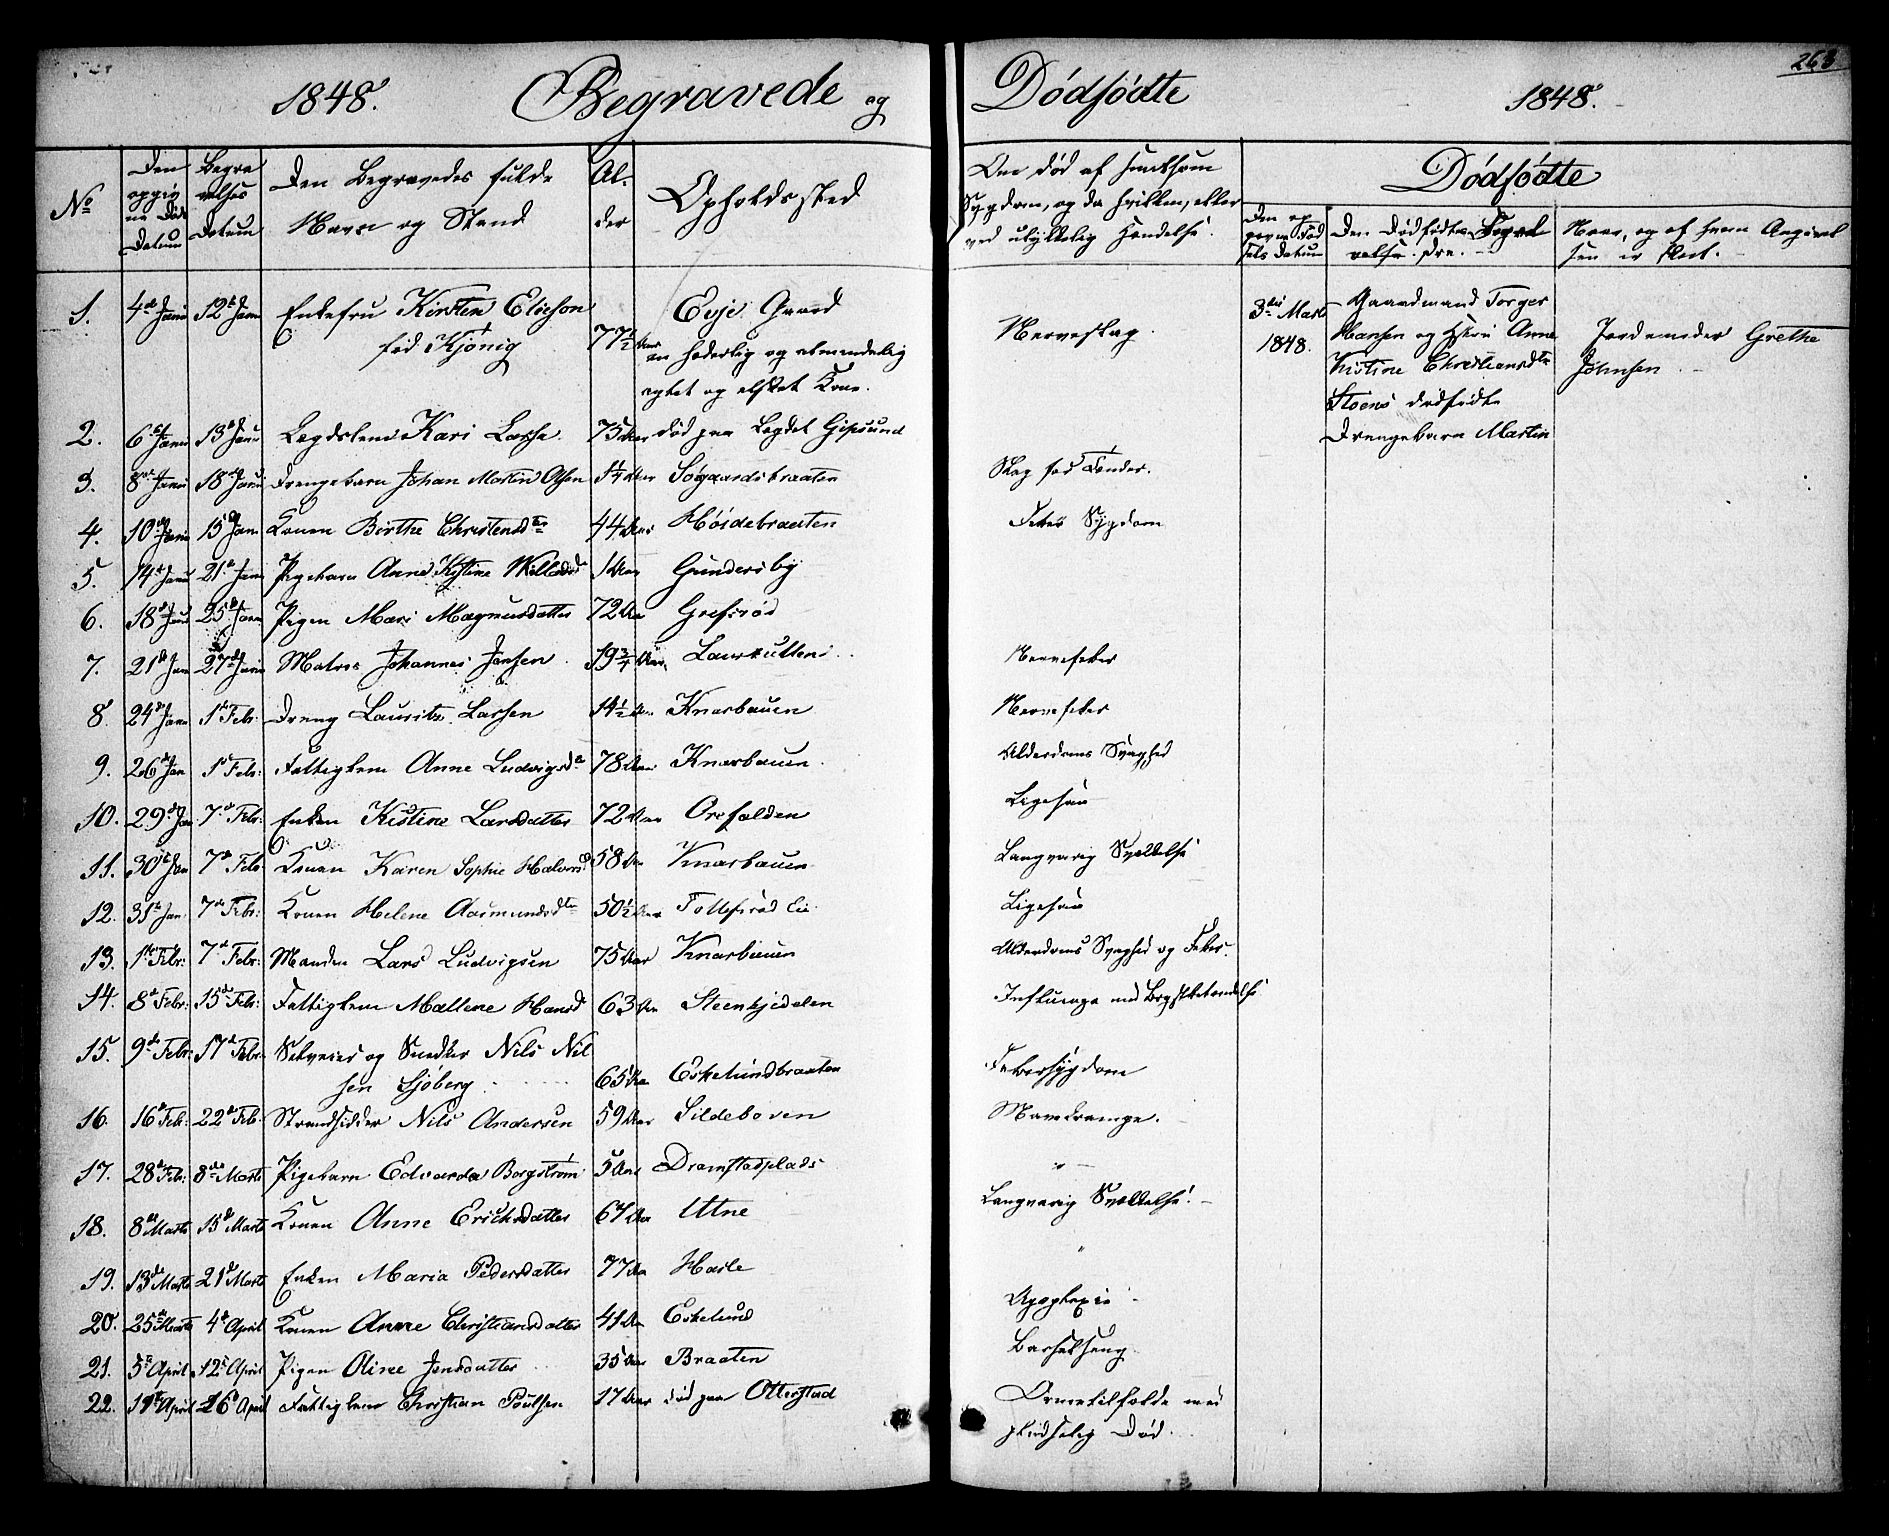 1848. Begravede og Dødfødte 1848. 263
No
Den opgivne Døds Datum
Begravelses Datum
Den Begravedes fulde Navn og Stand
Alder
Opholdssted
Om død af smitsom Sygdom, og da hvilken, eller ved ulykkelig Hændelse.
Dødfødte
Den opgivne Fødsels Datum
Den Dødfødtes Forældre.
Naar, og af hvem Angivelsen er skeet.
1. 4de Janu 12te Janu Enkefru Kirsten Elieson Evje Gaard Nervesslag.
fød Kjønig 77½ Aar en hæderlig og almindelig
agtet og elsket Kone.
3die Marts 1848. Gaardmand Torger
Hansen og Hstru Anne
Kirstine Christiansdtr
Stoens dødfødte
Drengebarn Martin
Jordemoder Grethe
Johnsen
2. 6te Janu 13de Janu Lægdslem Kari Larsse. 75 Aar død paa Lægdet Gipsund
3. 8de Janu 18de Janu Drengebarn Johan Martin Olsen 1¼ Aar Søgaardsbraaten Slag for Tænder.
4. 10de Janu 15de Janu Konen Birthe Christensdtr 44 Aar Høidebraaten Feber Sygdom
5. 14de Janu 21de Janu Pigebarn Anne Kistine Willadsd 1 Aar Gundersby
6. 18de Janu 25de Janu Pigen Mari Magnusdatter 72 Aar Grefsrød
7. 21de Jan 27de Janu Matros Johannes Jensen 19¾ Aar Laurkullen Nervefeber
8. 24de Janu 1ste Febr: Dreng Lauritz Larsen 14½ Aar Knarbauen Nervefeber
9. 26de Jan 1ste Febr: Fattiglem Anne Ludvigsdtr 78 Aar Knarbauen. Alderdoms Svaghed
10. 29de Jan 7de Febr: Enken Kistine Larsdatter 72 Aar Orefolden Ligesaa
11. 30te Jan 7de Febr Konen Karen Sophie Halvorsd 58 Aar Knarbauen Langvarig Svækkelse
12. 31te Jan: 7de Febr: Konen Helene Aasmundsdtr 50½ Aar Tollefsrød Eie Ligesaa
13. 1ste Febr: 7de Febr: Manden Lars Ludvigsen 75 Aar Knarbauen Alderdoms Svaghed og Feber.
14. 8de Febr: 15de Febr: Fattiglem Mallene Hansd 63 Aar Steenkjedalen Influenza med Brystbetændelse
15. 9de Febr: 17de Febr: Selveier og Snedker Nils Nil
sen Sjøberg 65 Aar Eskelundbraaten Febersygdom
16. 16de Feb: 22de Feb: Strandsidder Nils Andersen 59 Aar Sildeboven Mavekrampe.
17. 28de Feb: 8de Marts Pigebarn Edvarda Borgstrøm 5 Aar Dramstadplads "
18. 8de Marts 15de Marts Konen Anne Ericksdatter 67 Aar Utne Langvarig Svækkelse.
19. 13de Marts 21de Marts Enken Maria Pedersdatter 77 Aar Harle "
20. 25de Marts 4de April Konen Anne Christiansdatter 41 Aar Eskelund Apoplexie
21. 5te April 12te April Pigen Oline Jensdatter 35 Aar Braaten Barselseng
22. 11te April 16de April Fattiglem Christian Poulsen 17 Aar død paa Otterstad Ormetilfælde med
pludselig Død.